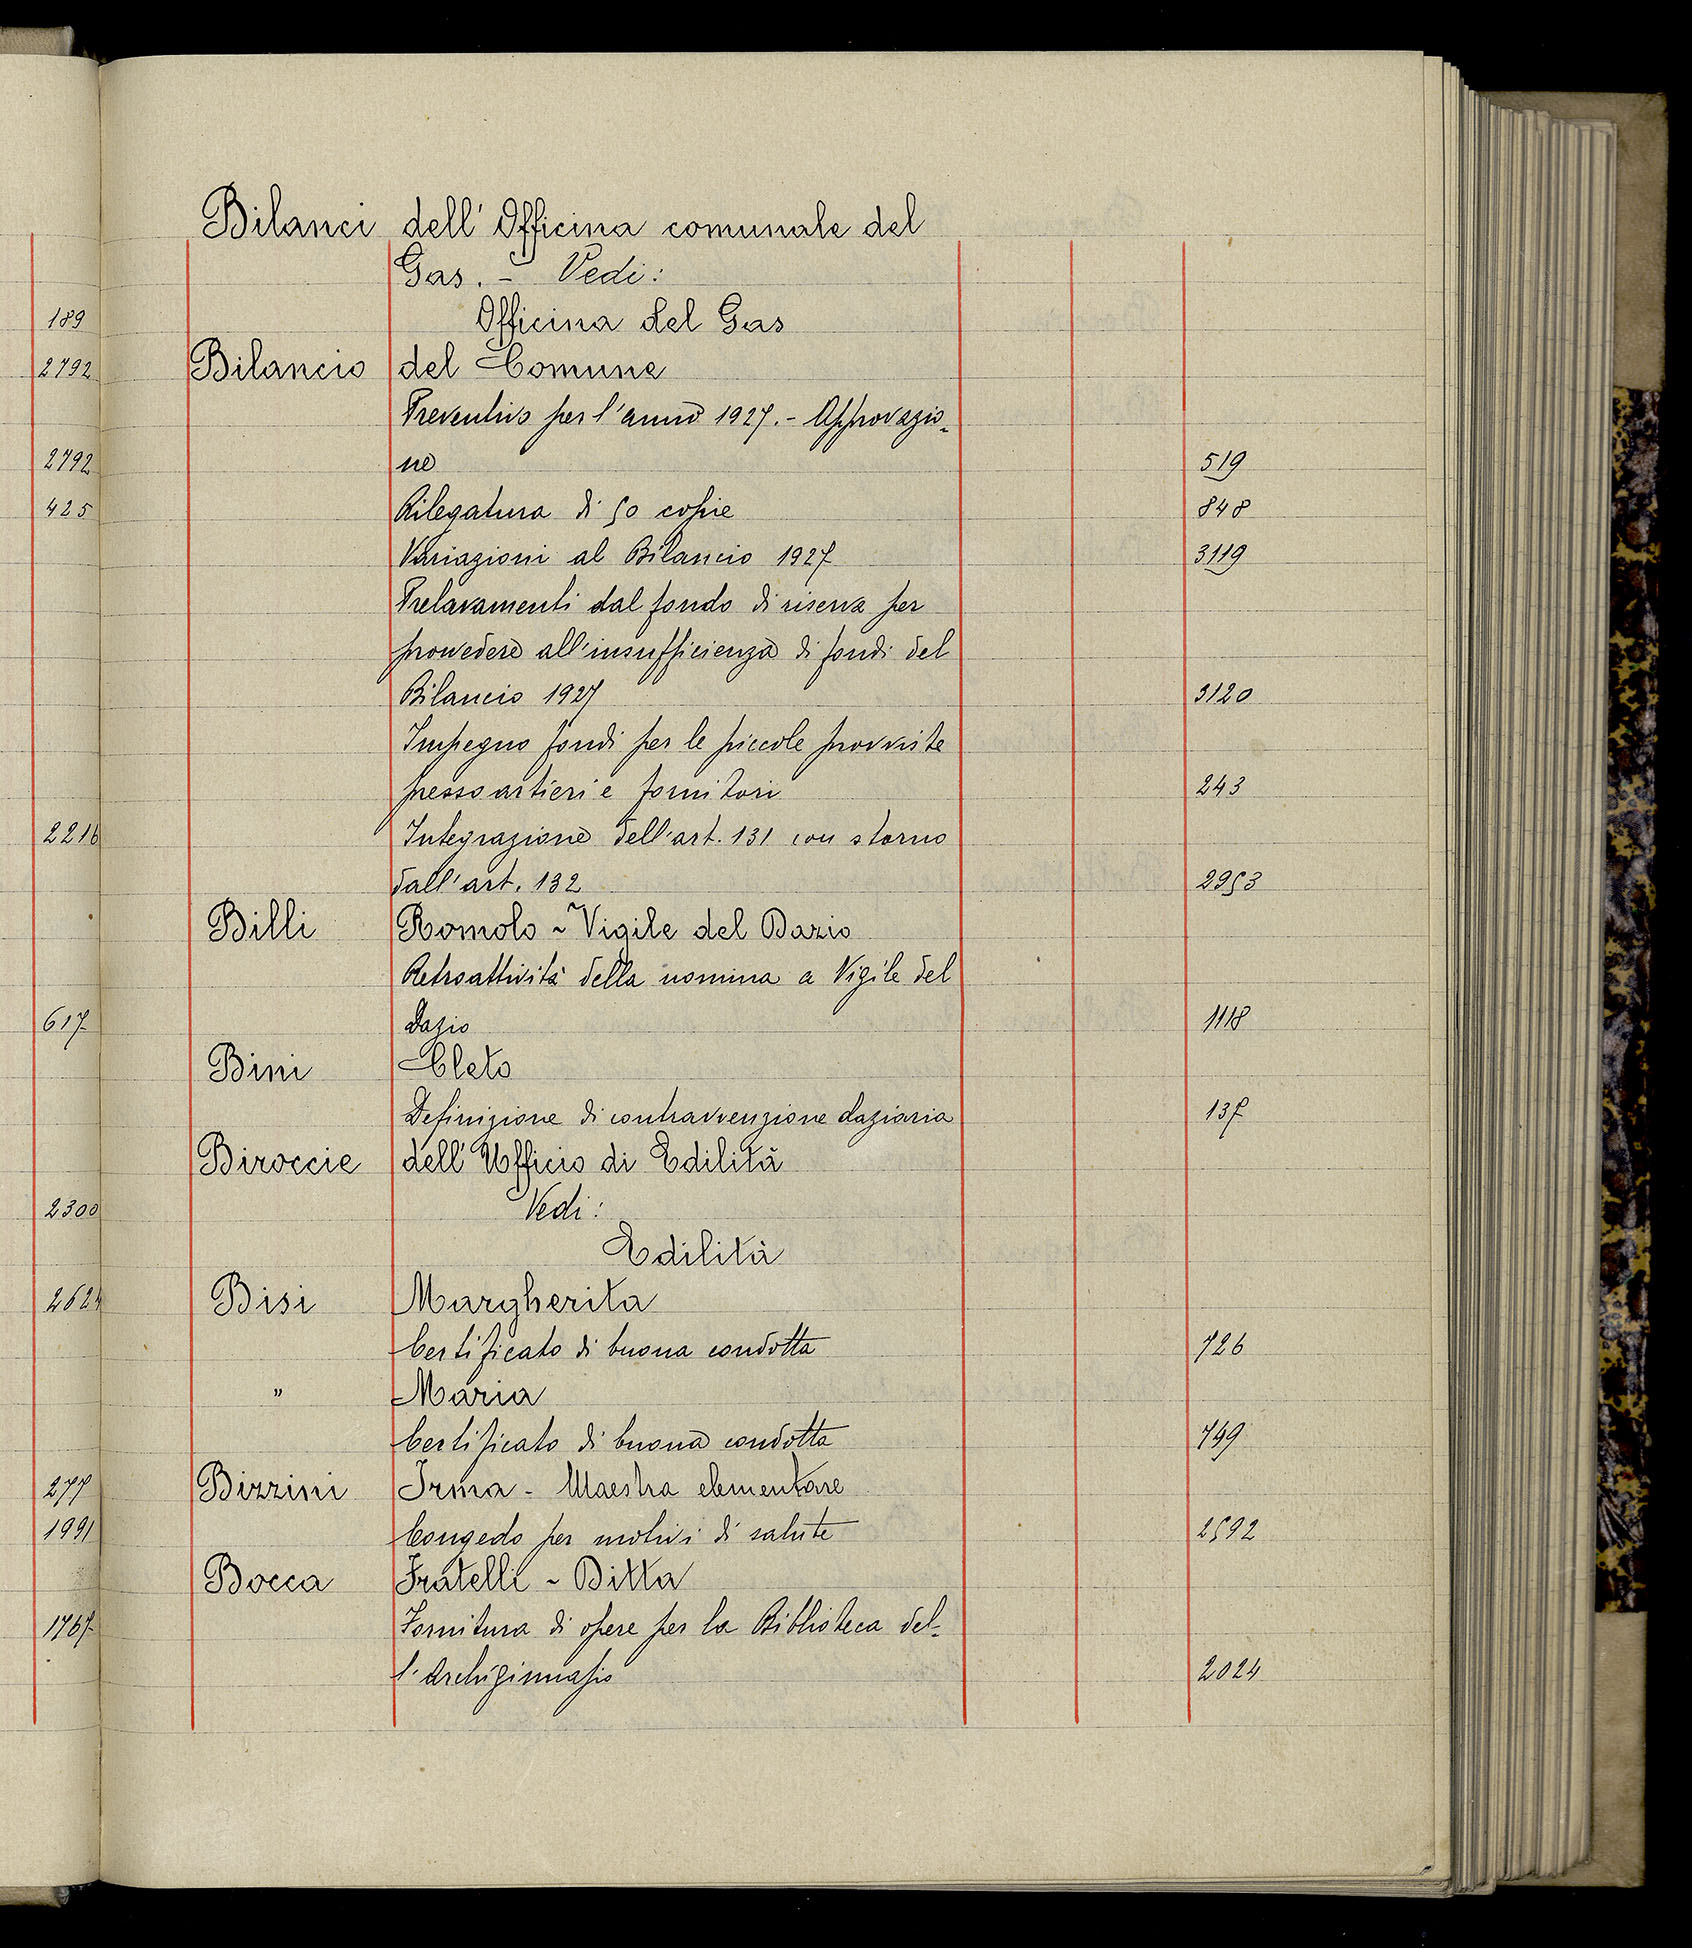 189
2792
2792
425
2216
617
2300
2624
277
1991
1767
Bilanci dell'Officina comunale del
Gas. - Vedi:
Officina del Gas
Bilancio del Comune
Preventivo per l'anno 1927. - Approvazio-
ne 519
Rilegatura di 50 copie 848
Variazioni al Bilancio 1927 3119
Prelavamenti dal fondo di riserva per
provvedere all'insufficienza di fondi del
Bilancio 1927 3120
Impegno fondi per le piccole provviste
presso artieri e fornitori 243
Integrazione dell'art. 131 con storno
dall'art. 132 2953
Billi Romolo ~ Vigile del Dazio
Retroattività della nomina a Vigile del
Dazio 1118
Bini Cleto
Definizione di contravvenzione daziaria 137
Biroccie dell'Ufficio di Edilità
Vedi:
Edilità
Bisi Margherita
Certificato di buona condotta 726
" Maria
Certificato di buona condotta 749
Bizzini Irma - Maestra elementare
Congedo per motivi di salute 2592
Bocca Fratelli ~ Ditta
Fornitura di opere per la Biblioteca del-
l'Archiginnasio 2024